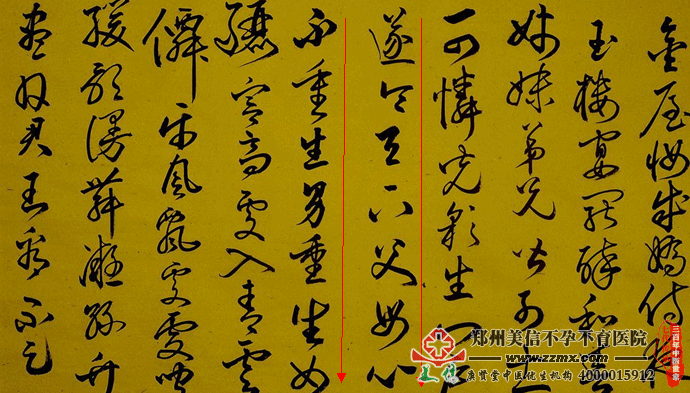 金屋妝成嬌侍夜
玉樓宴罷醉和春
姊妹弟兄皆列土
可憐光彩生門戶
遂令天下父母心
不重生男重生女
驪宮高處入青雲
僊樂風飄處處聞
緩歌謾舞凝絲竹
盡日君王看不足
三百年中医世家
郑州美信不孕不育医院
www.zzmx.com
美信
廣贤堂中医优生机构 4000015912